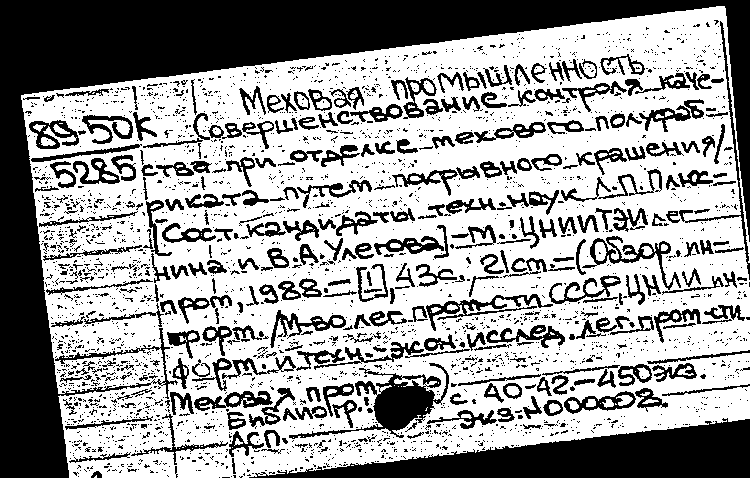 Меховая промышленность.
89-50К. Совершенствование контроля каче-
5285 ства при отделке мехового полуфаб-
риката путем покрывного крашения/
[Сост. кандидаты техн. наук Л.П. Плюс-
нина и В.А. Улегова]-М.: ЦНИИТЭИлег-
пром, 1988.-[1], 43с.; 21см.-(Обзор. ин-
форм. /М-во лег. пром-сти СССР, ЦНИИ ин-
форм. и техн.-экон. исслед. лег. пром-сти.
Меховая пром-сть)
Библиогр.: с. 40-42.-450экз.
ДСП.- экз. N000002.